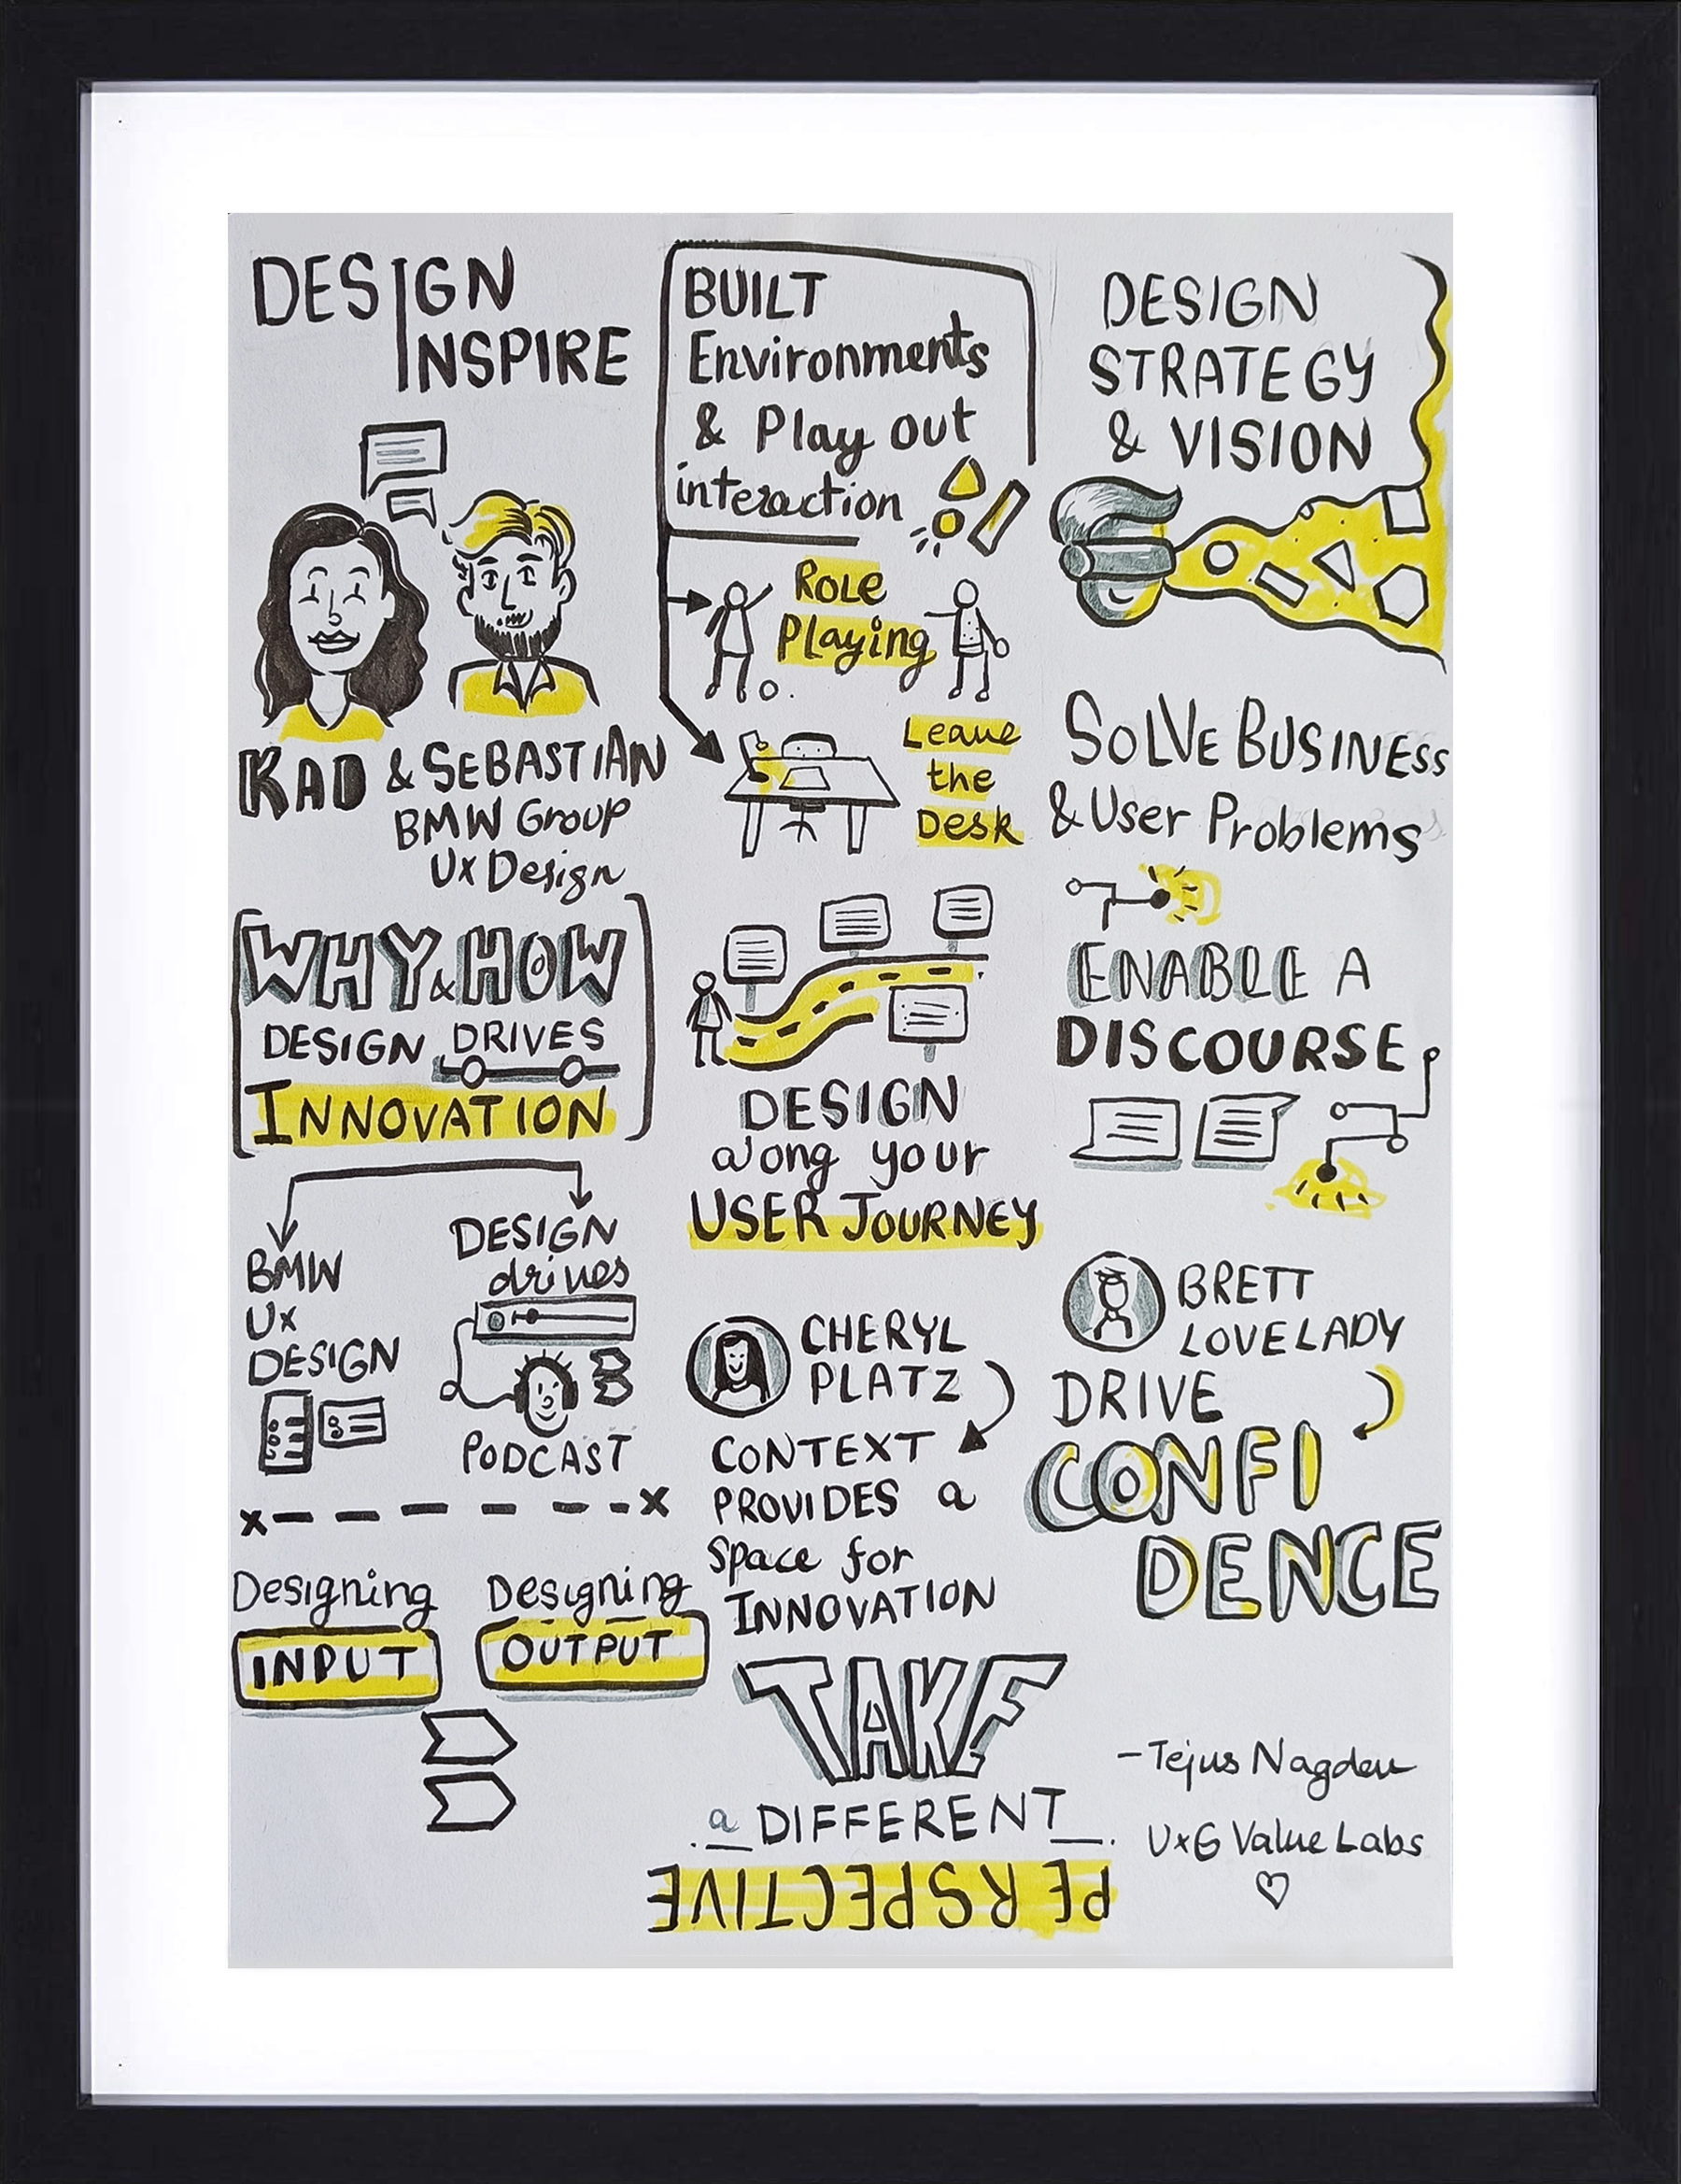 DESIGN
INSPIRE
KAD & SEBASTIAN
BMW Group
Ux Design
WHY & HOW
DESIGN DRIVES
INNOVATION
BMW
Ux
DESIGN
DESIGN
drives
PODCAST
Designing
INPUT
Designing
OUTPUT
BUILT
Environments
& Play out
interaction
ROLE
Playing
Leave
the
Desk
DESIGN
along your
USER JOURNEY
CHERYL
PLATZ
CONTEXT
PROVIDES a
Space for
INNOVATION
TAKE
a DIFFERENT
PERSPECTIVE
DESIGN
STRATEGY
& VISION
SOLVE BUSINESS
& User Problems
ENABLE A
DISCOURSE
BRETT
LOVELADY
DRIVE
CONFI
DENCE
- Tejus Nagdev
UxG Value Labs